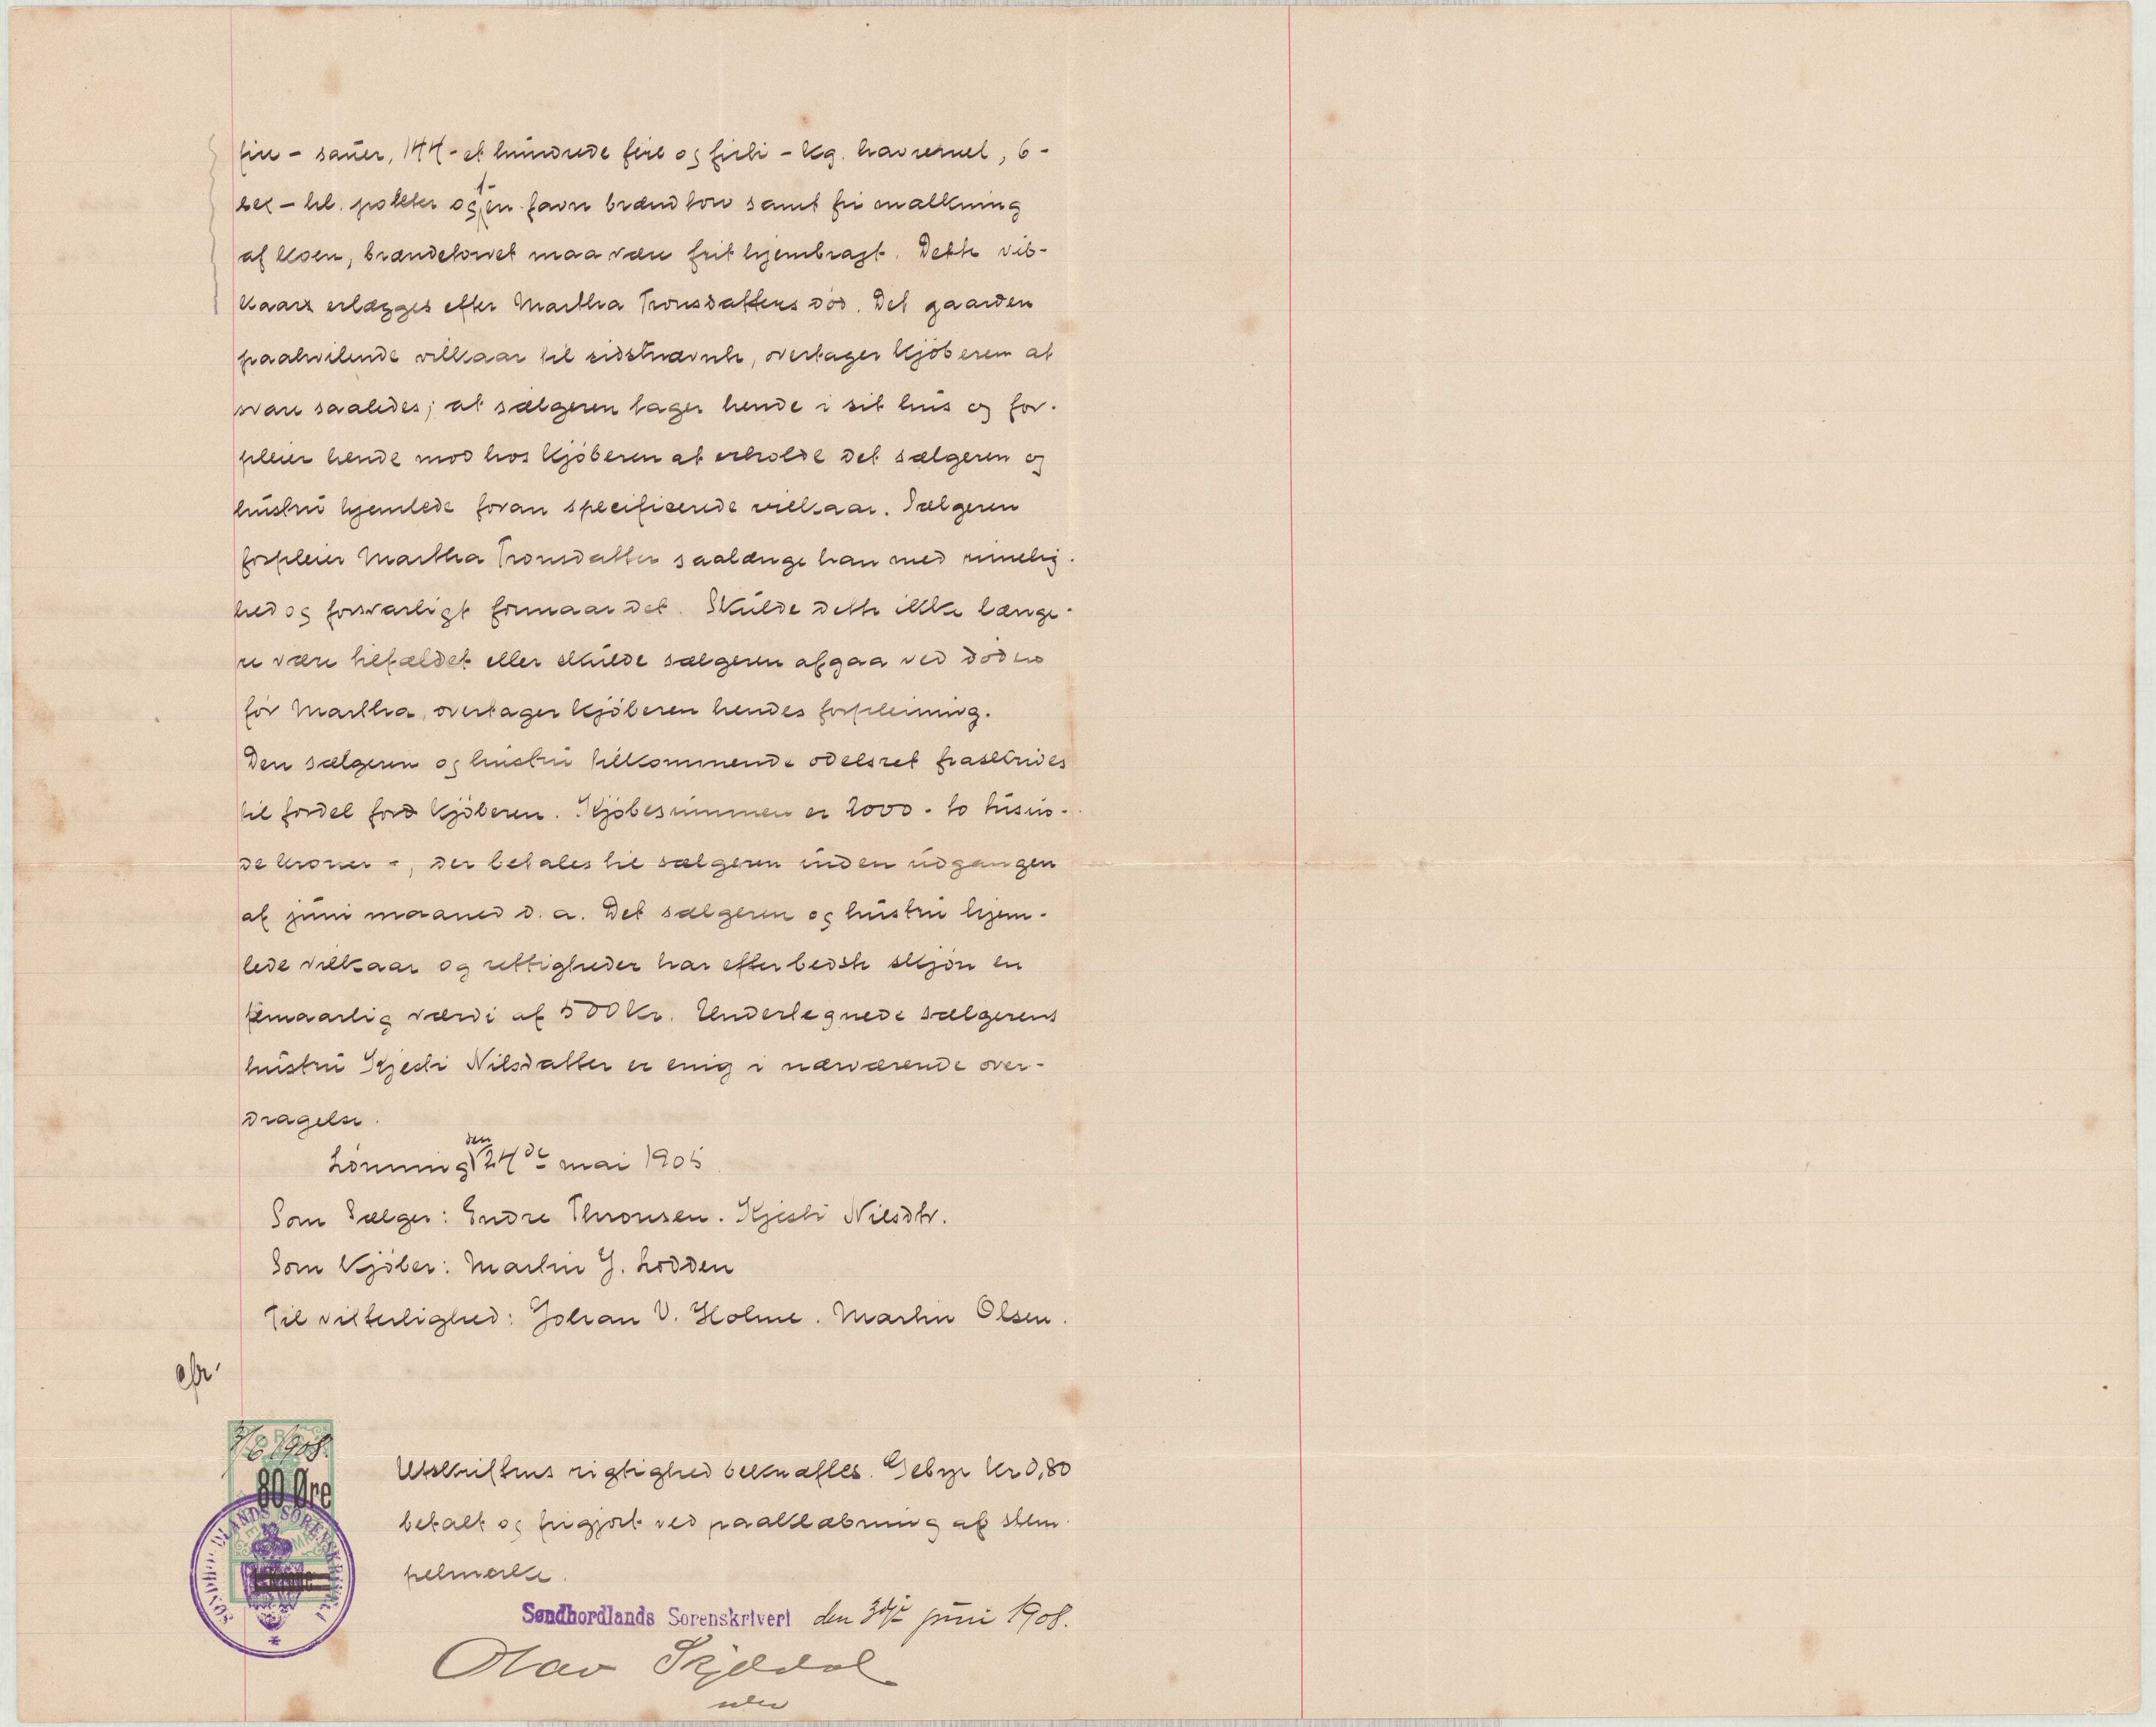 fire - sauer, 144 - et hundrede fire og firti - kg. havremel, 6 -
sex - hl. poteter og 1 - en favn brændtorv samt fri malkning
af koen, brændetorvet maa være frit hjembragt. Dette vil-
kaar erlægges efter Martha Tronsdatters død. Det gaarden
paahvilende vilkaar til sidstnævnte, overtager kjøberen at
svare saaledes; at sælgeren tager hende i sit hus og for-
pleier hende mod hos kjøberen at erholde det sælgeren og
hustru hjemlede foran specificerede vilkaar. Sælgeren
forpleier Martha Tronsdatter saalænge han med rimelig-
hed og forsvarligt formaar det. Skulde dette ikke længe-
re være tilfældet eller skulde sælgeren afgaa ved døden
før Martha, overtager kjøberen hendes forpleining.
Den sælgeren og hustru tilkommende odelsret fraskrides
til fordel for kjøberen. Kjøbesummen er 2000 - to tusin-
de kroner -, der betales til sælgeren inden udgangen
af juni maaned d. a. Det sælgeren og hustru hjem-
lede vilkaar og rettigheder har efter bedste skjøn en
femaarlig værdi af 500 kr. Undertegnede sælgerens
hustru Kjesti Nilsdatter er enig i nærværende over-
dragelse.
Lønning den 24de mai 1905
Som Sælger: Endre Thronsen. Kjesti Nilsdtr.
Som Kjøber: Martin G. Lodden
Til vitterlighed: Johan V. Holme. Martin Olsen.
cfr.
3/6 1908.
80 Øre
SØNDHORDLANDS SORENSKRIVERI
Utskriftens rigtighed bekræftes. Gebyr kr 0,80
betalt og frigjort ved paaklæbning af stem-
pelmærke.
Søndhordlands Sorenskriveri den 3dje juni 1908.
Olav Skjeldal